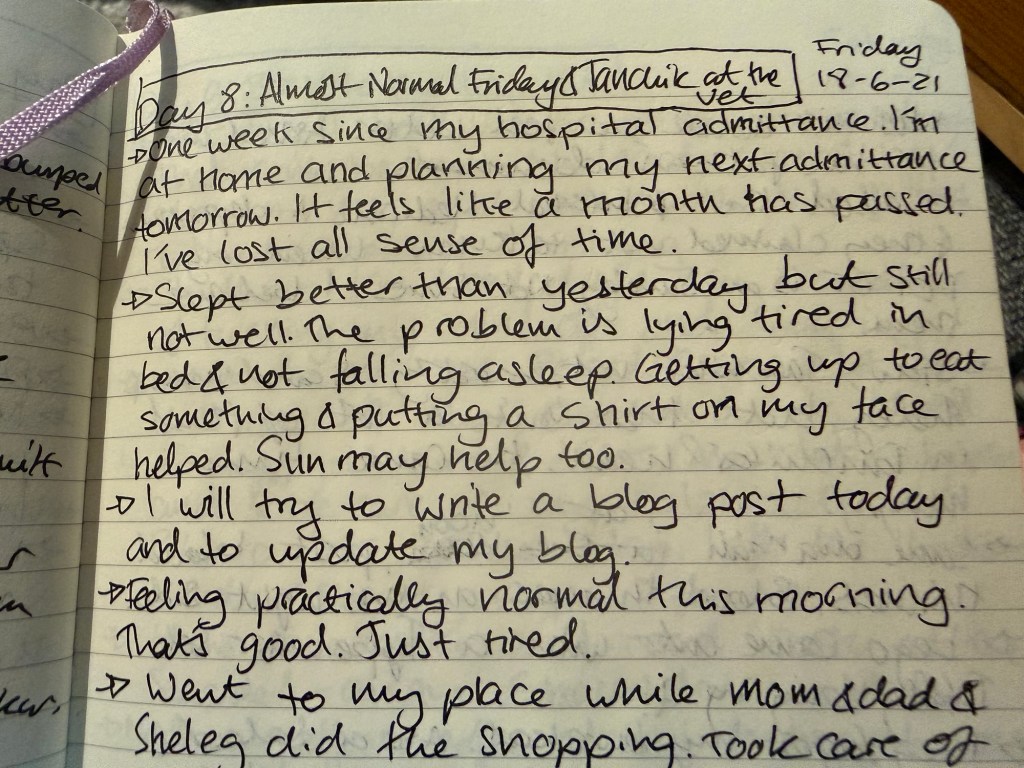 Friday
18-6-21
Day 8: Almost Normal Friday & Tanchik at the
vet
→One week since my hospital admittance. I'm
at home and planning my next admittance
tomorrow. It feels like a month has passed.
I've lost all sense of time.
→Slept better than yesterday but still
not well. The problem is lying tired in
bed & not falling asleep. Getting up to eat
something & putting a shirt on my face
helped. Sun may help too.
→I will try to write a blog post today
and to update my blog.
→Feeling practically normal this morning.
That's good. Just tired.
→Went to my place while mom & dad &
Sheleg did the shopping. Took care of
bumped